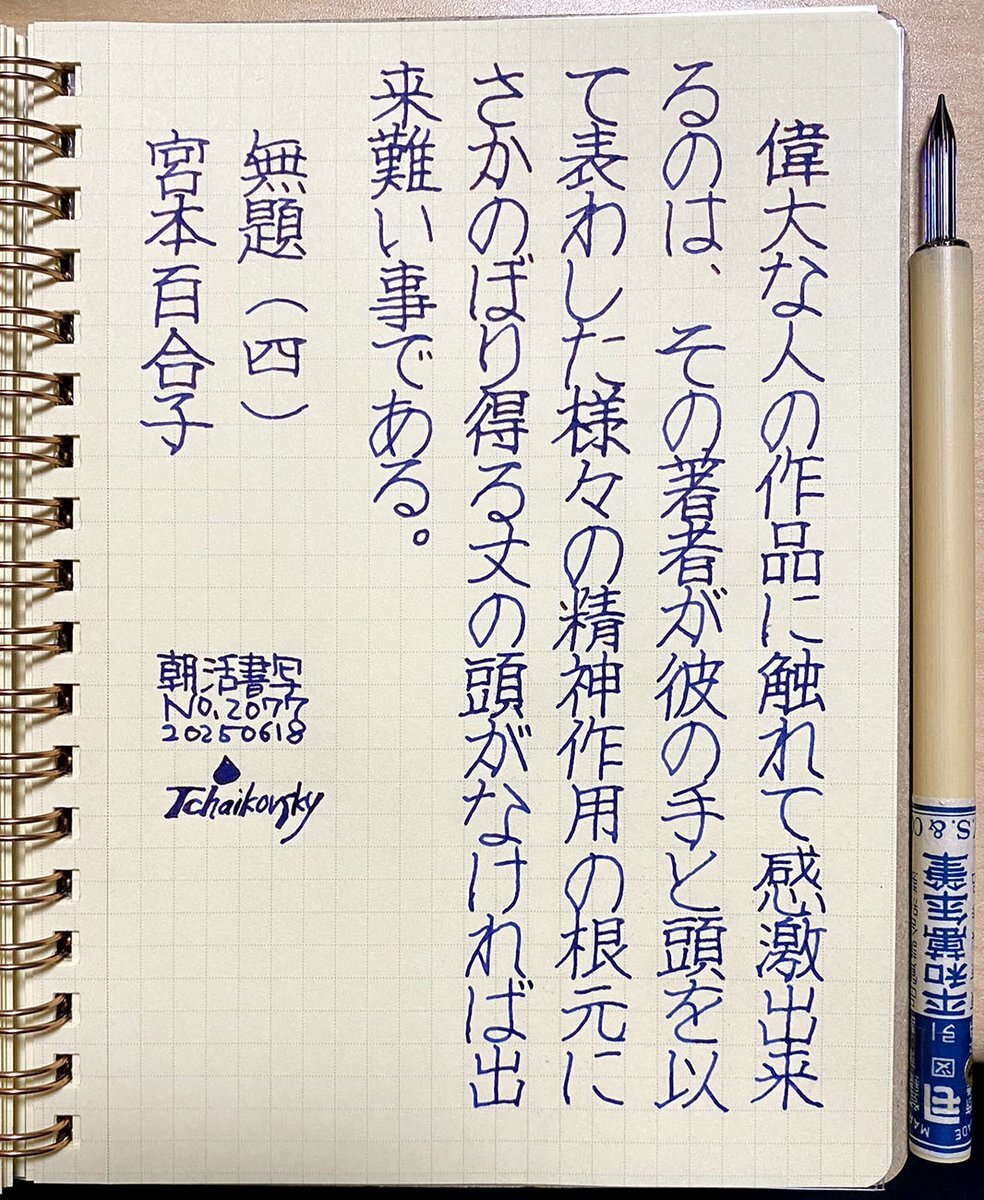 偉大な人の作品に触れて感激出来
るのは、その著者が彼の手と頭を以
て表わした様々の精神作用の根元に
さかのぼり得る丈の頭がなければ出
来難い事である。
無題（四）
宮本百合子
朝活書写
No.2077
20250618
Tchaikovsky
S. & C
平和萬年筆